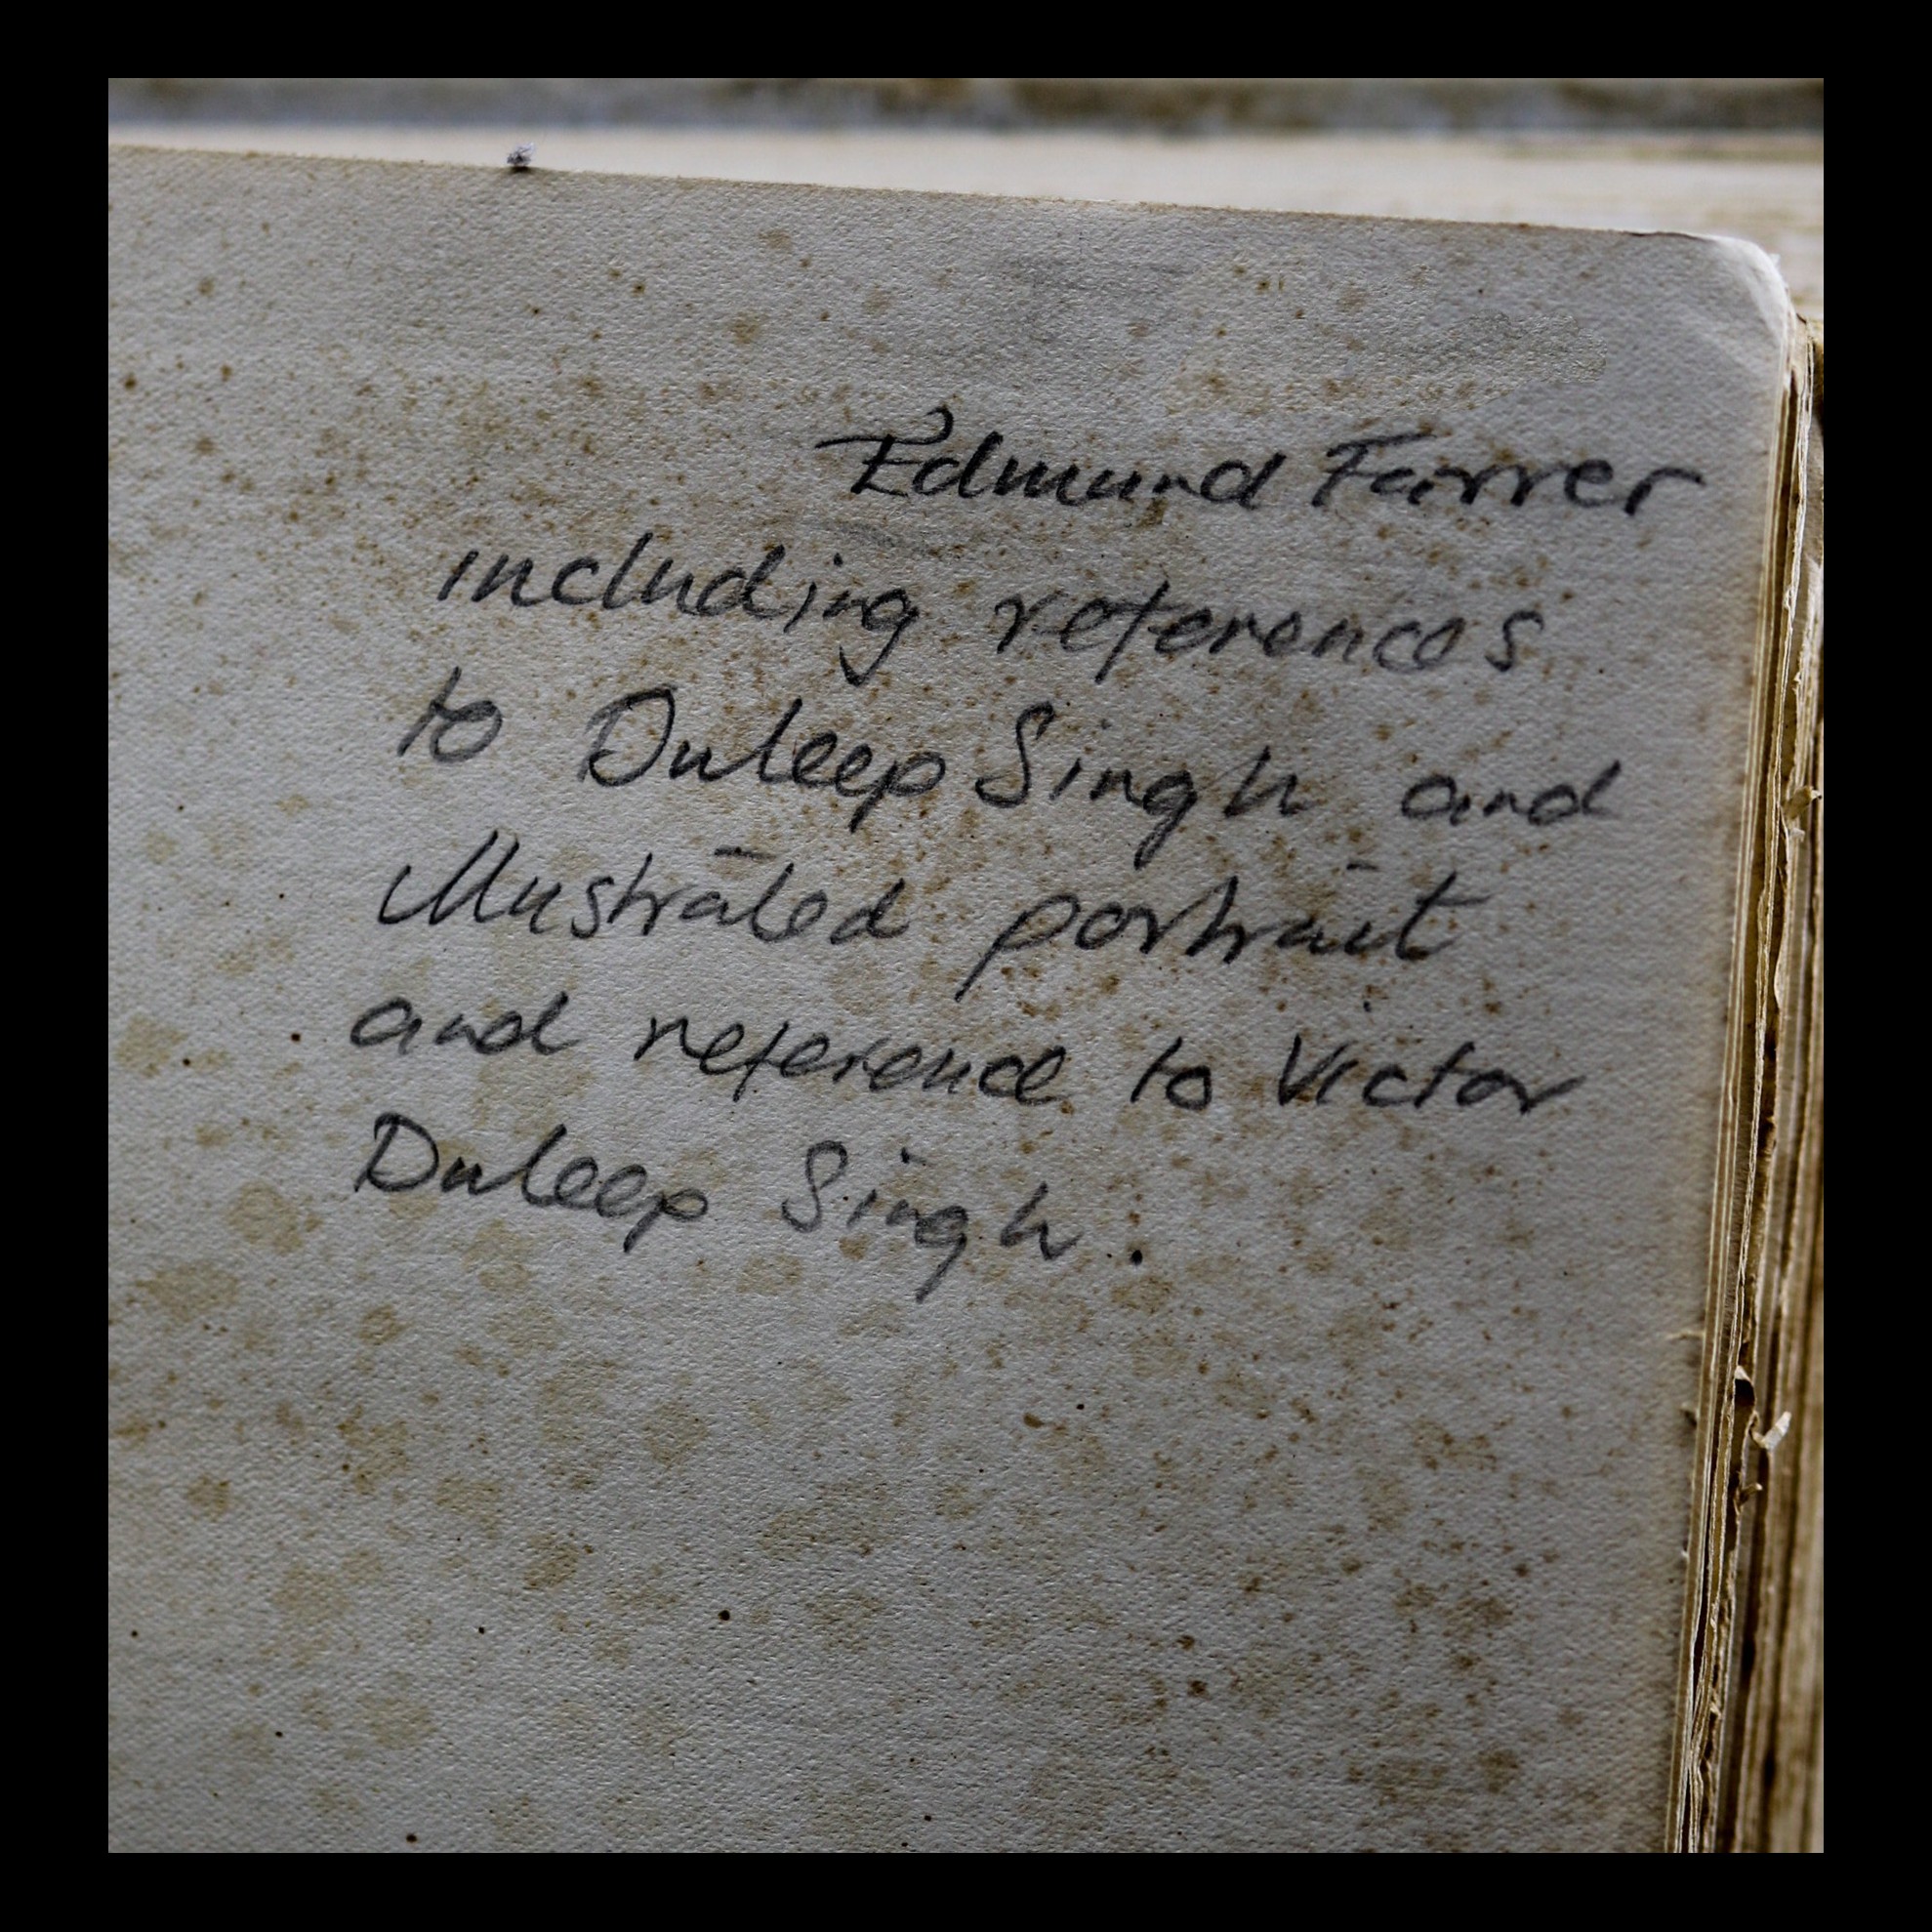 Edmund Farrer
including references
to Duleep Singh and
illustrated portrait
and reference to Victor
Duleep Singh.